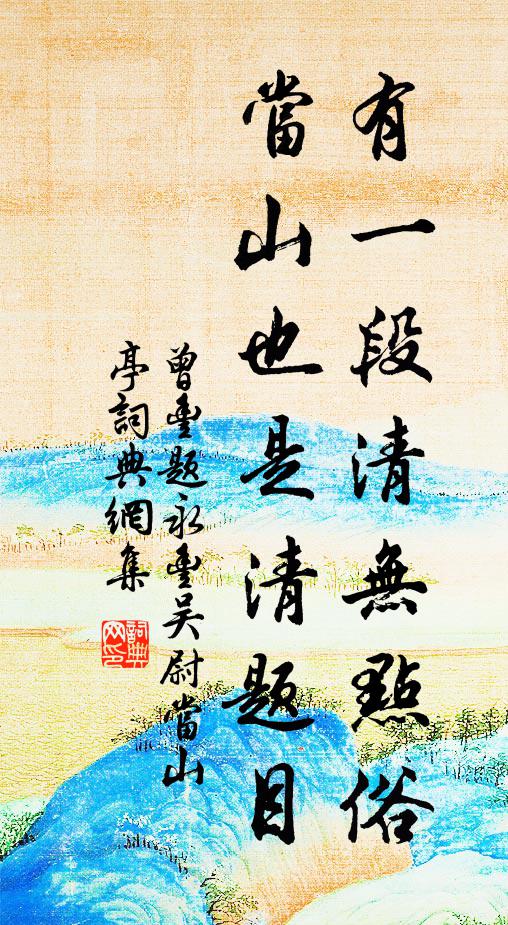 有一段清無點俗
當山也是清題目
曾豐題永豐吳尉當山
亭詞典網集
詞典
网印